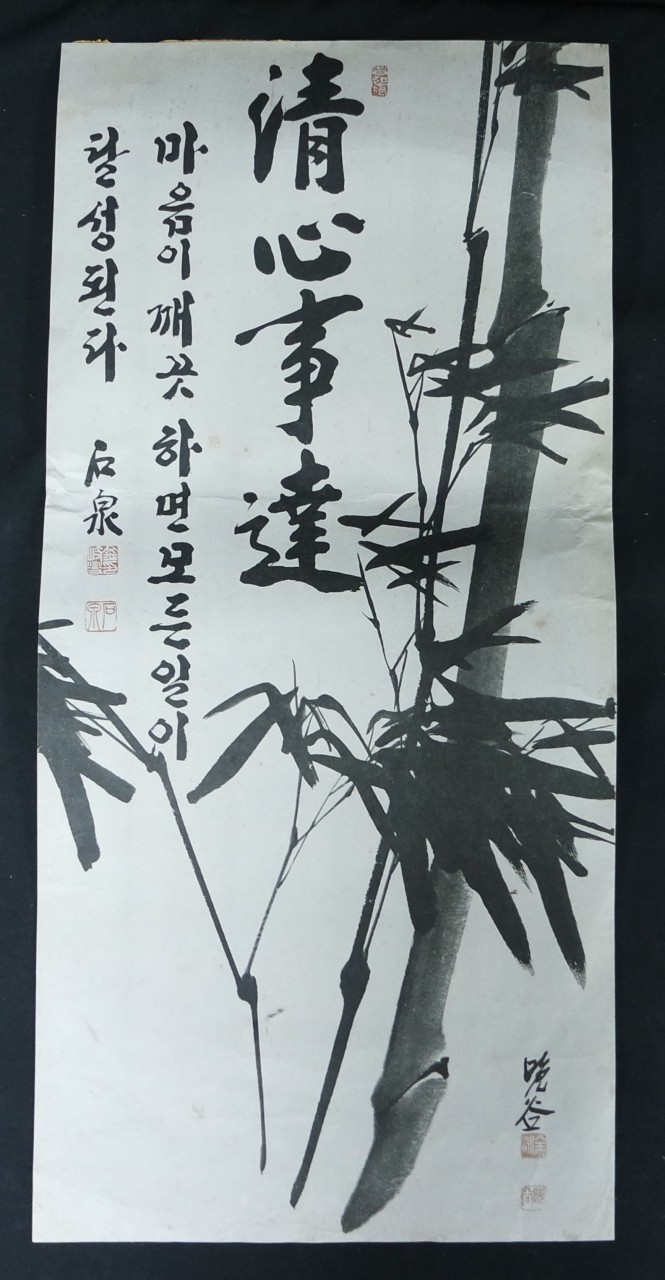 清心事達
마음이 깨끗하면 모든 일이
달성된다
石泉
晩谷